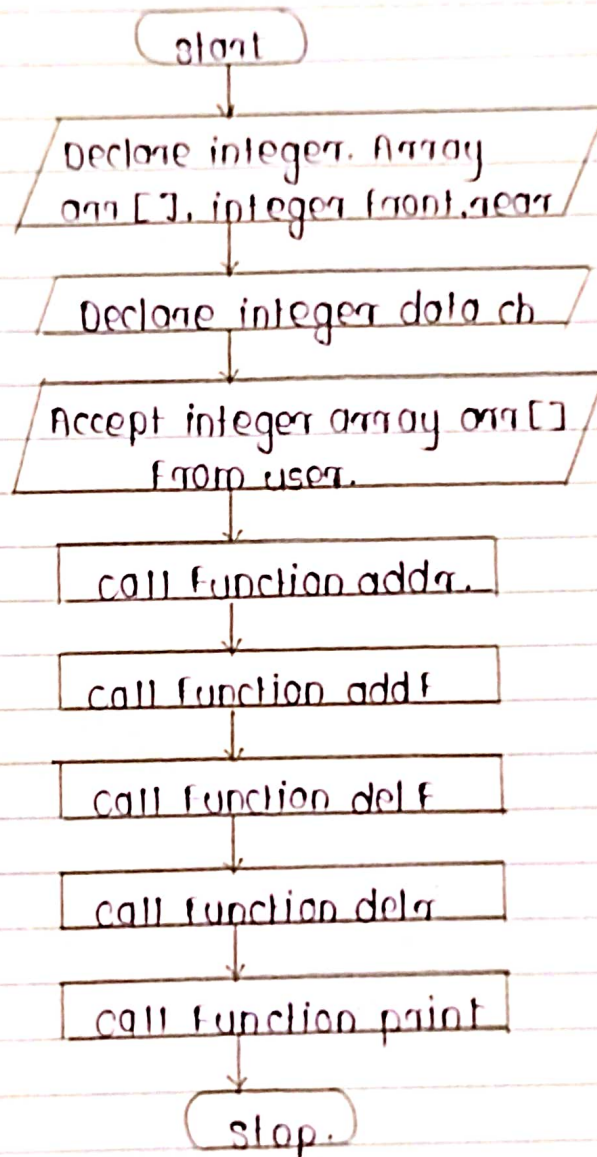 start
Declare integer. Array
arr [ ]. integer front.rear
Declare integer data ch
Accept integer array arr [ ]
from user.
call function addr.
call function addf
call function delf
call function delr
call function print
stop.